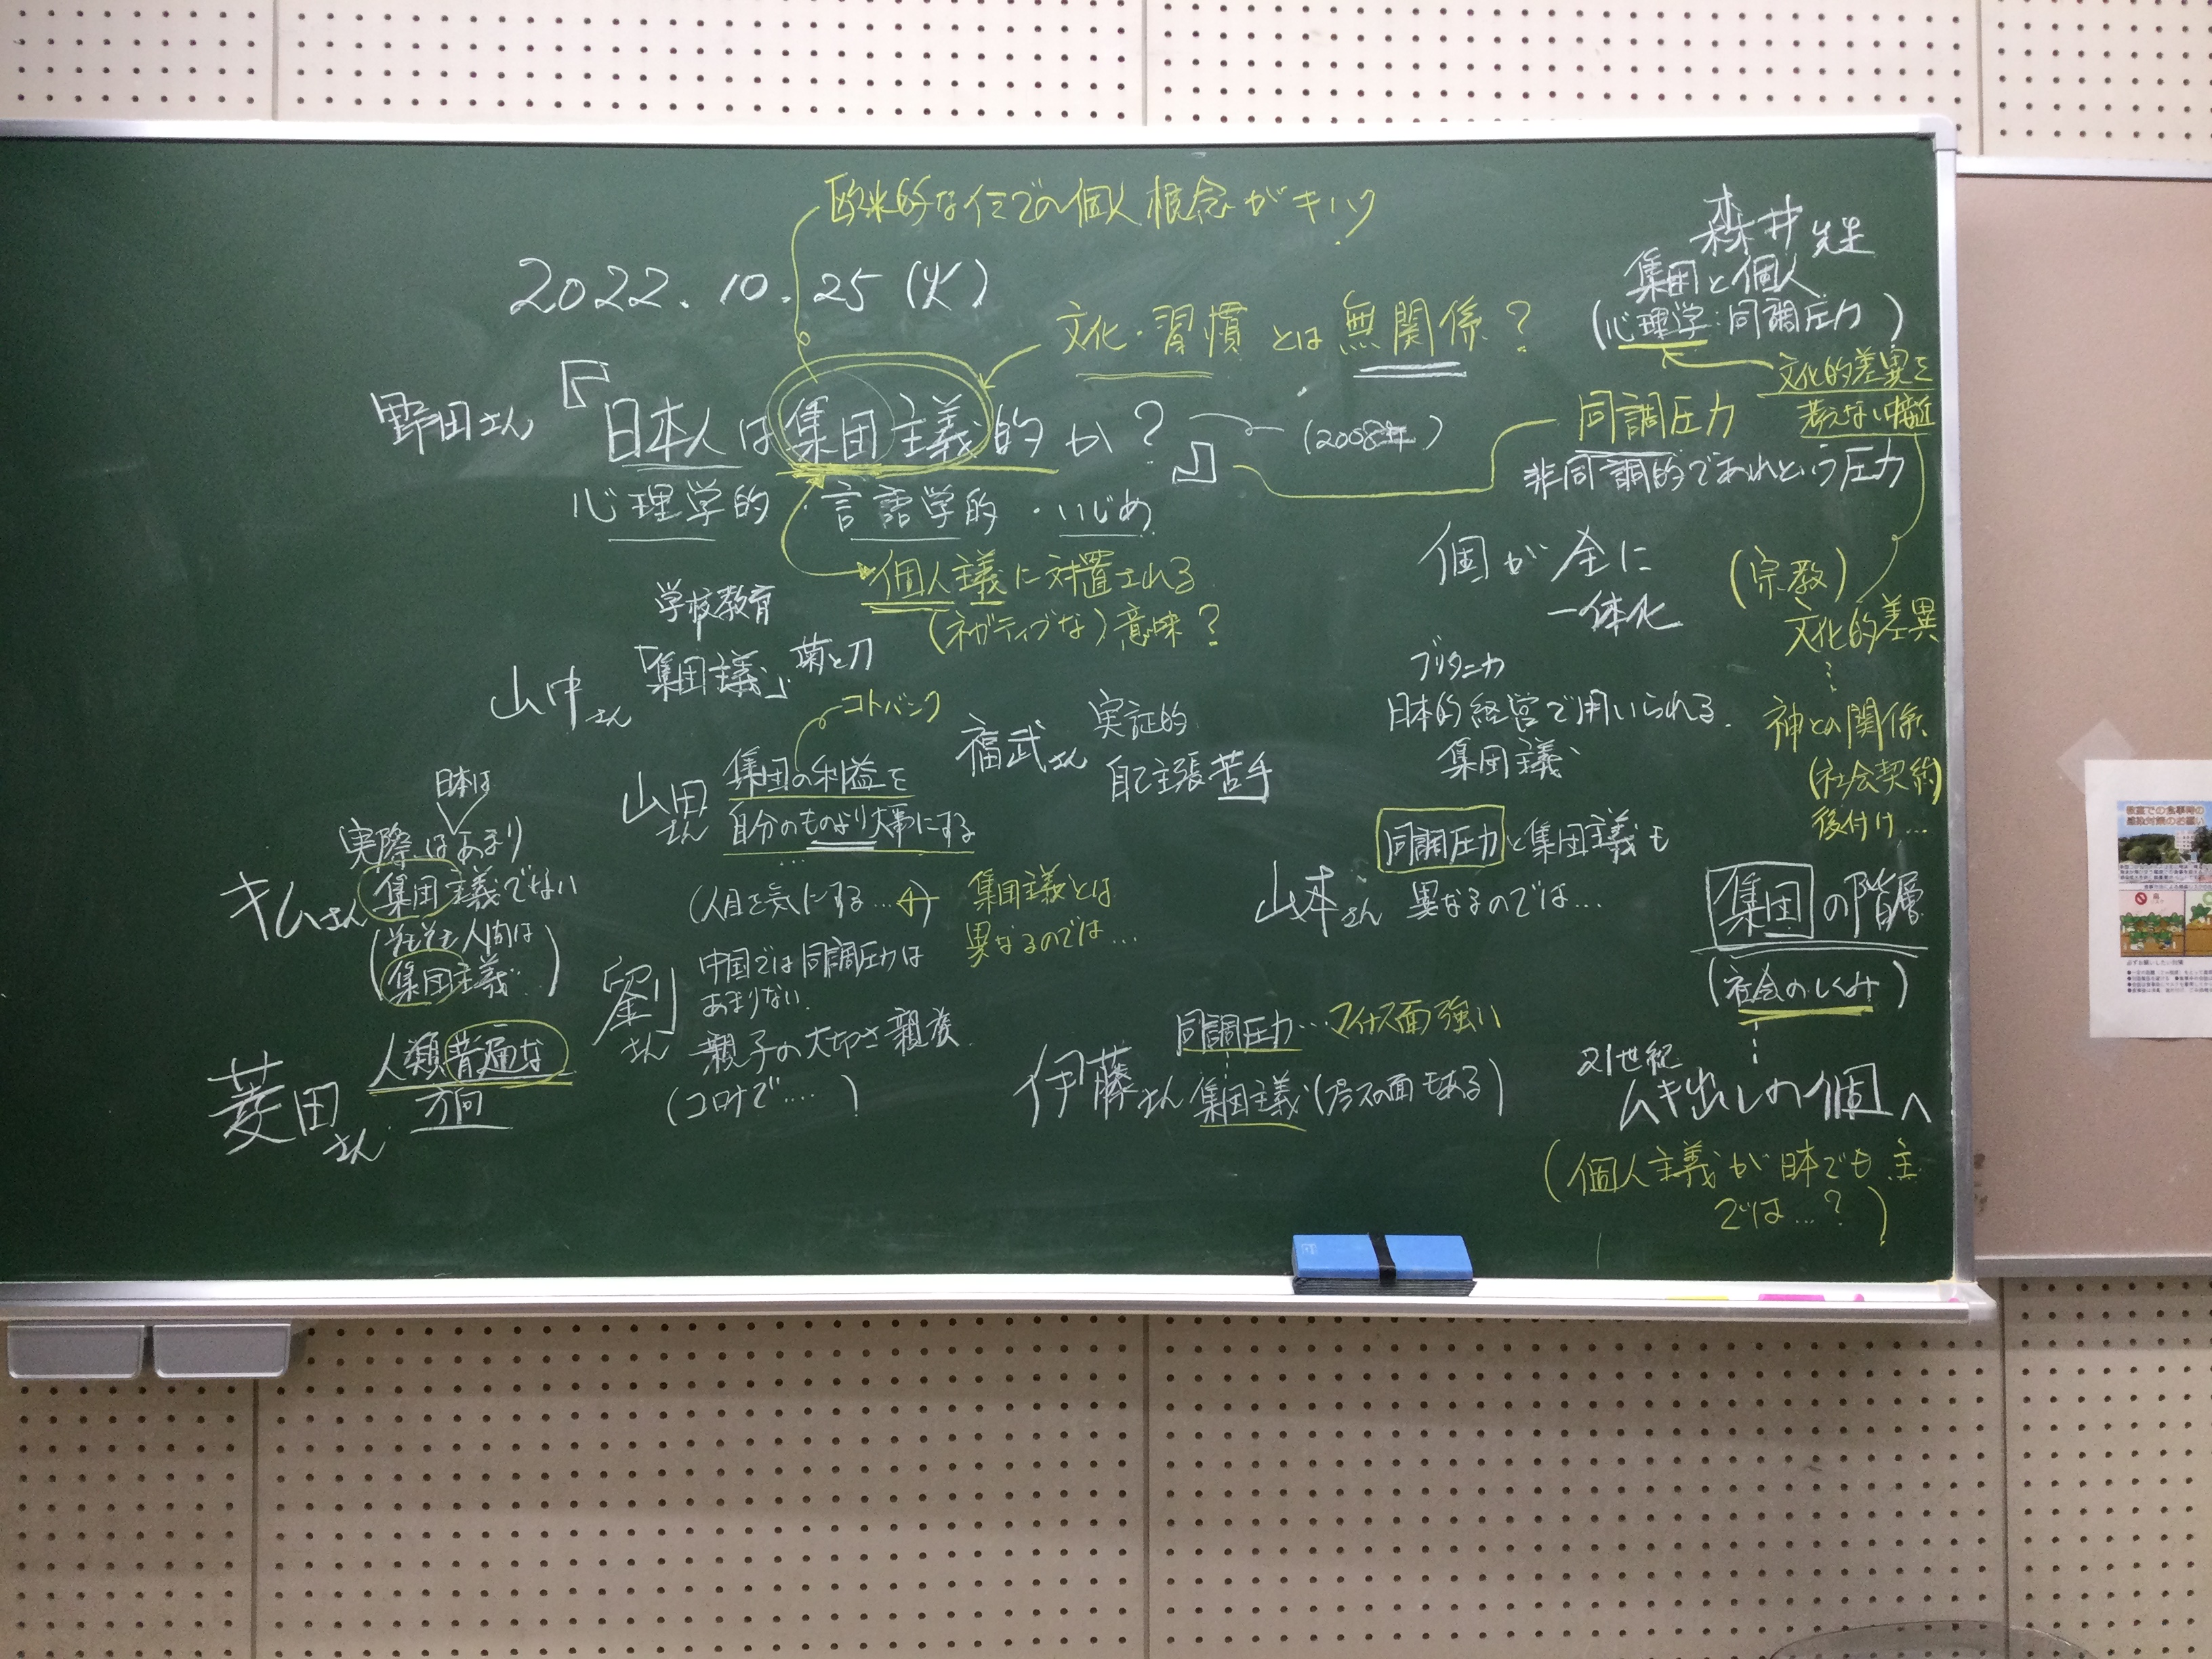 欧米的なイミでの個人概念がキハク
2022.10.25(火)
文化・習慣とは無関係?
野田さん
『日本人は集団主義的か?』
(2008年)
心理学的・言語学的・いじめ
個人主義に対置される
(ネガティブな)意味?
森井先生
集団と個人
(心理学:同調圧力)
文化的差異を
考えない
同調圧力
非同調的であれという圧力
個が全に
一体化
(宗教)
文化的差異
神との関係
(社会契約)
後付け…
学校教育
山中さん
「集団主義」
菊と刀
コトバンク
山田さん
集団の利益を
自分のものより大事にする
…
(人目を気にする…)
集団主義とは
異なるのでは…
福武さん
実証的
自己主張苦手
ブリタニカ
日本的経営で用いられる
集団主義
山本さん
同調圧力と集団主義も
異なるのでは…
日本は
キムさん
実際はあまり
集団主義でない
(そもそも人間は
集団主義…)
菱田さん
人類普遍な
方向
劉さん
中国では同調圧力は
あまりない.
親子の大切さ 親族
(コロナで....)
伊藤さん
同調圧力…マイナス面強い
集団主義(プラスの面もある)
集団の階層
(社会のしくみ)
21世紀
ムキ出しの個へ
(個人主義が日本でも主
では…?)